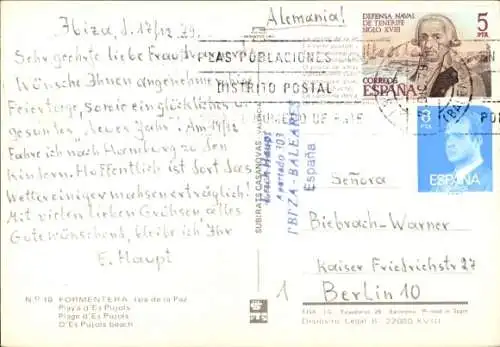 Ibiza, d. 17/12.79.
Sehr geehrte liebe Frau
Wünsche Ihnen angenehme
Feiertage, sowie ein glückliches u
gesundes "Neues Jahr". Am 19/12
Fahre ich nach Hamburg zu den
Kindern. Hoffentlich ist dort das
Wetter einigermassen erträglich!
Mit vielen lieben Grüßen alles
Gute wünschend, bleibe ich Ihr
E. Haupt
N.º 18 FORMENTERA, Isla de la Paz
Playa d'Es Pujols
Plage d'Es Pujols
D'Es Pujols beach
SUBIRATS CASANOVAS - VALENCIA
Erich Haupt
Apartado 107
IBIZA-BALEARES
España
Alemania!
DEFENSA NAVAL
DE TENERIFE
SIGLO XVIII
5
PTA
CORREOS
ESPAÑA
LAS POBLACIONES
DISTRITO POSTAL
8
PTA
ESPAÑA
Señora
Biebrach-Warner
Kaiser Friedrichstr 27
Berlin 10
1